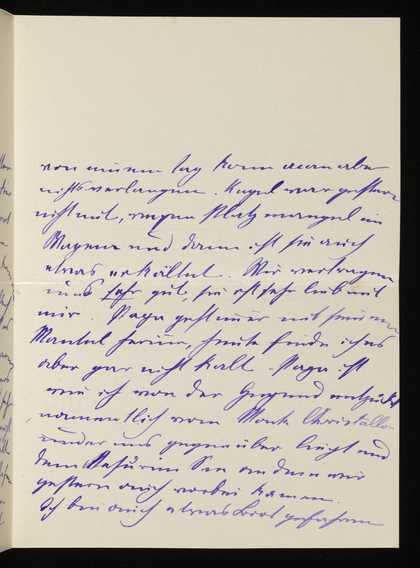 von einem Tag kann man aber
nichts verlangen. Kugel war gestern
nicht mit, wegen Platzmangel im
Wagen und dann ist sie auch
etwas erkältet. Wir vertragen
uns sehr gut, sie ist sehr lieb mit
mir. Papa gestern mit seinem
Mantel herum, heute finde ich es
aber gar nicht kalt. Papa ist
wie ich von der Gegend entzückt
namentlich vom Monte Christallo
der uns gegenüber liegt und
dem Misurina See an dem wir
gestern auch vorbei kamen.
Ich bin auch etwas Boot gefahren